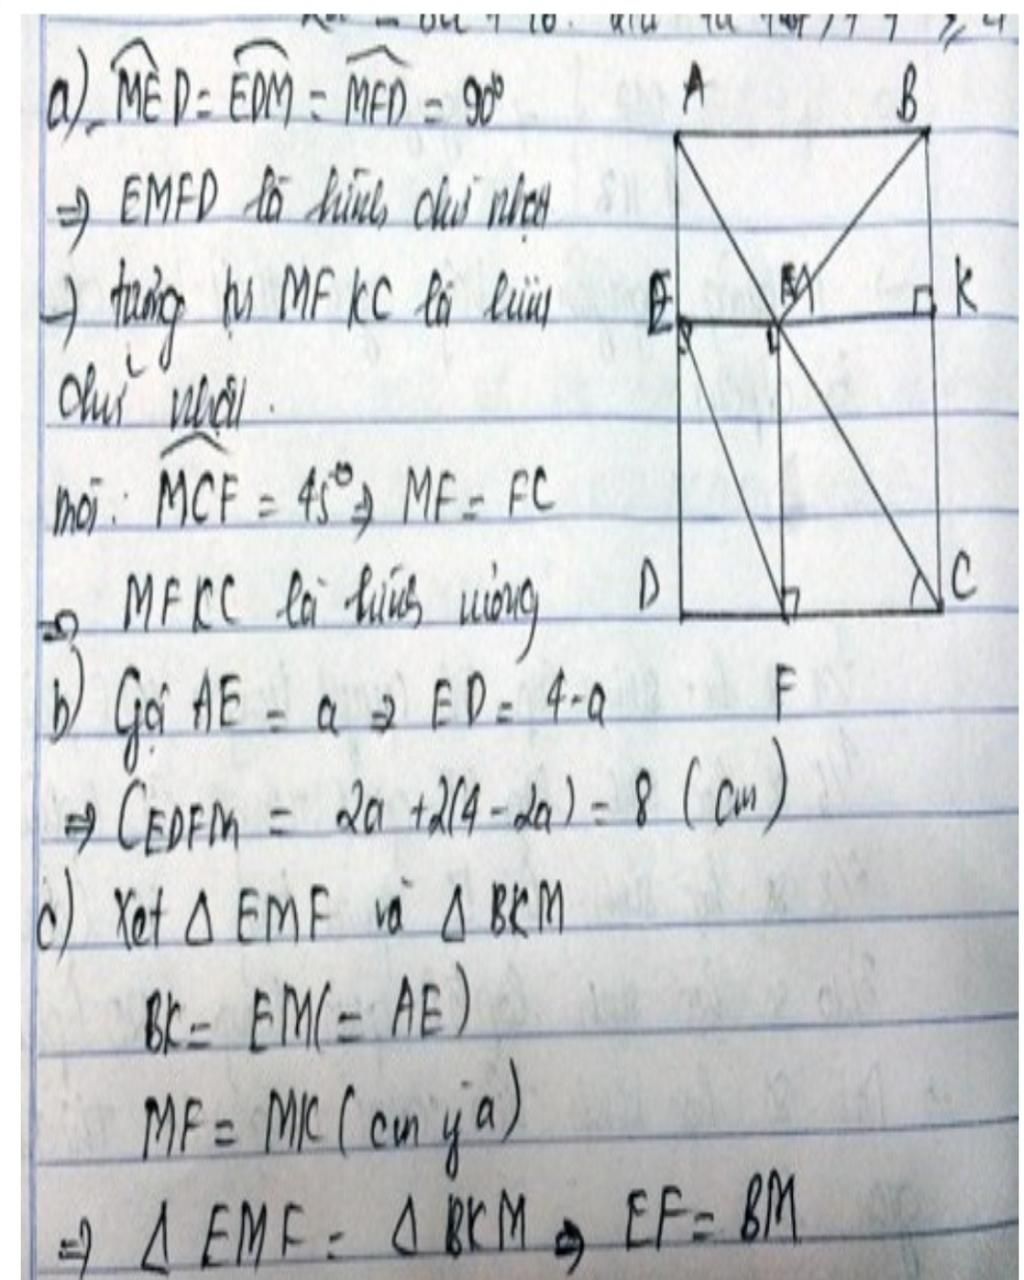 a) MÊD = EDM = MFD = 90°
⇒ EMFD là hình chữ nhật
⇒ tương tự MFKC là hình
chữ nhật.
mời: MCF = 45° ⇒ MF = FC
⇒ MFKC là hình vuông
b) Gọi AE = a ⇒ ED = 4-a
⇒ CEDFM = 2a + 2(4-2a) = 8 (cm)
c) Xét Δ EMF và Δ BKM
BK = EM (= AE)
MF = MK (cm ý a)
⇒ Δ EMF = Δ BKM ⇒ EF = BM
A B
E M K
D C
F